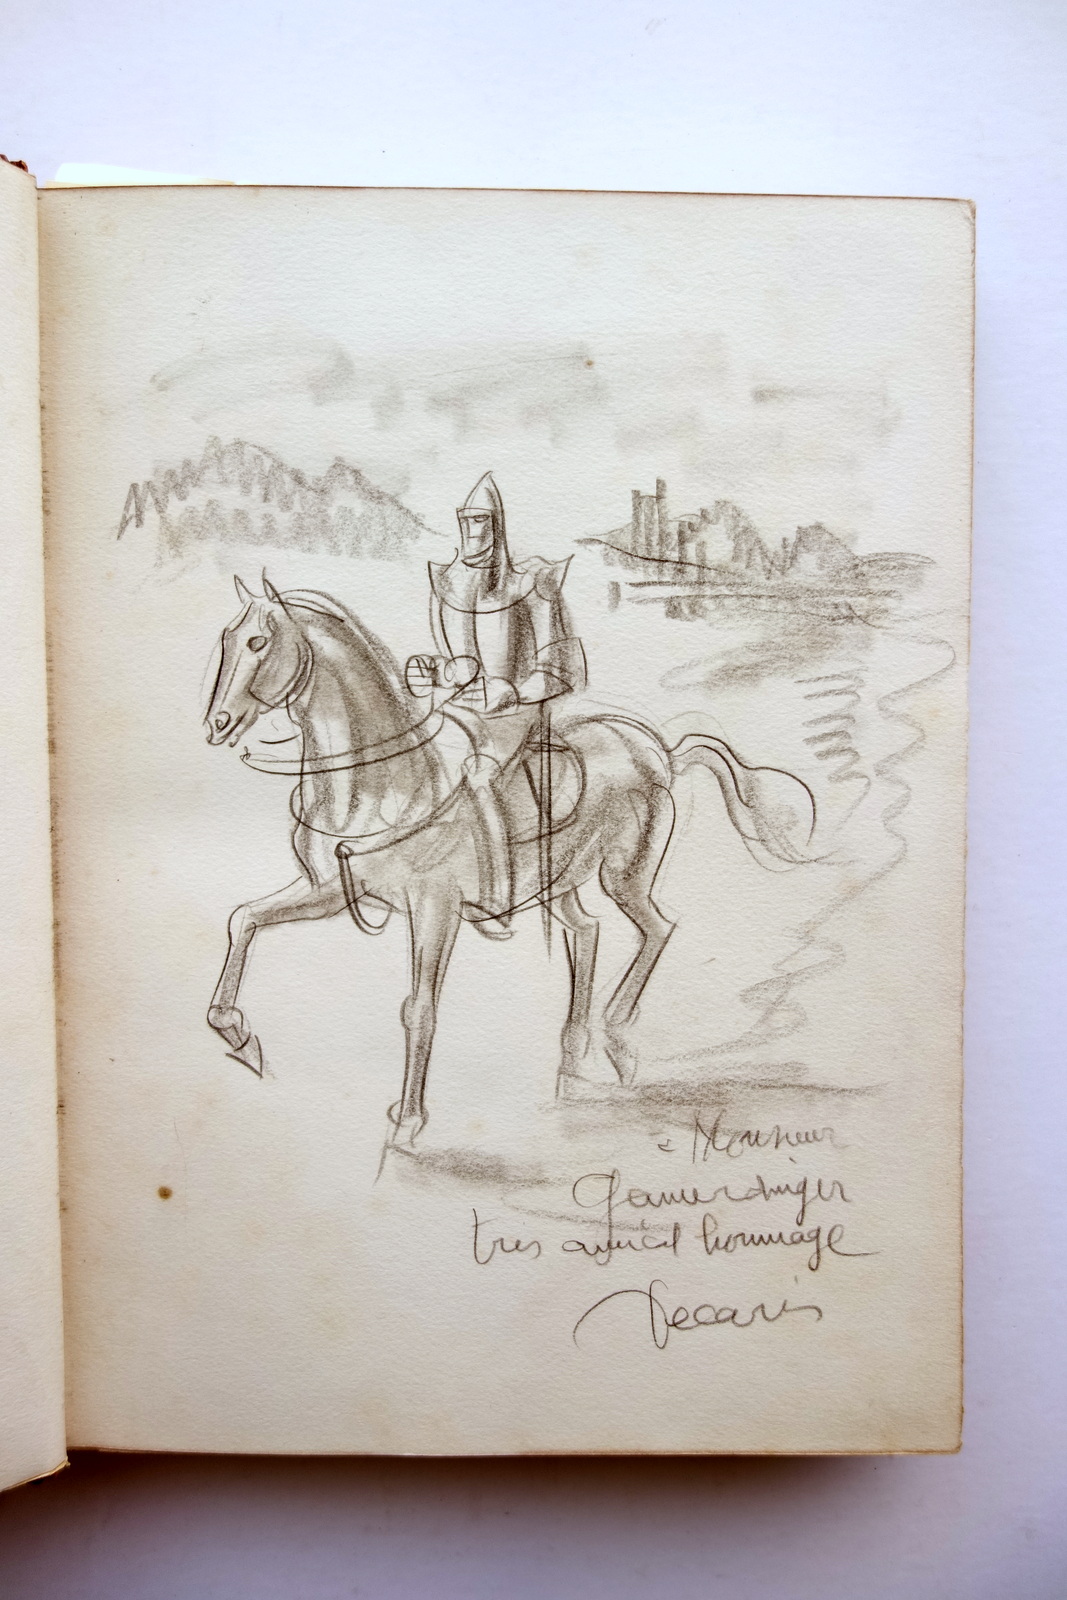 à Monsieur
Gamerdinger
très amical hommage
Decaris